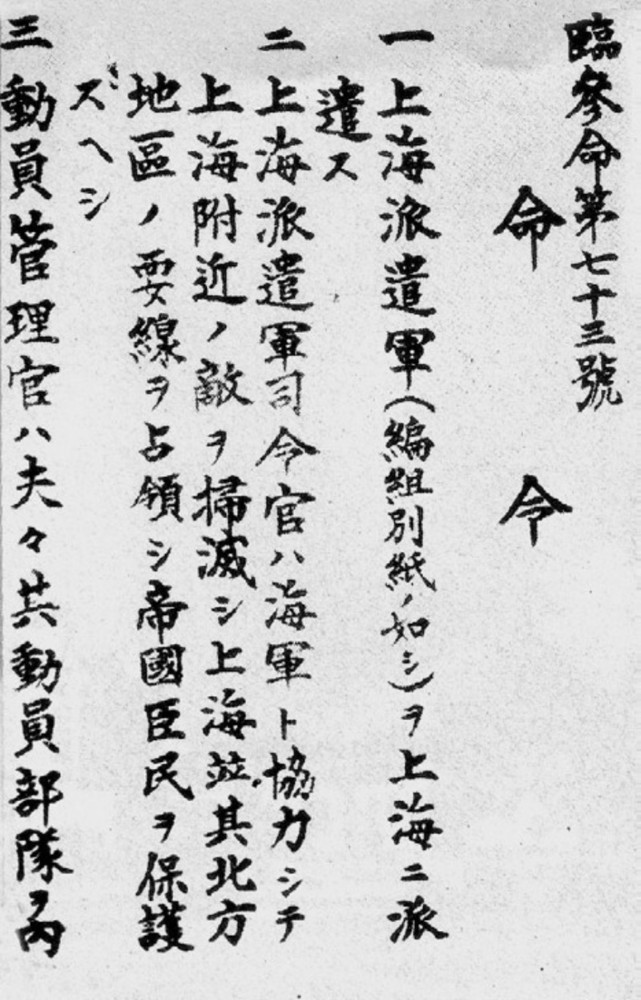 臨參命第七十三號
命令
一 上海派遣軍(編組別紙ノ如シ)ヲ上海ニ派
遣ス
二 上海派遣軍司令官ハ海軍ト協力シテ
上海附近ノ敵ヲ掃滅シ上海竝其北方
地區ノ要線ヲ占領シ帝國臣民ヲ保護
スヘシ
三 動員管理官ハ夫々其動員部隊ヲ內